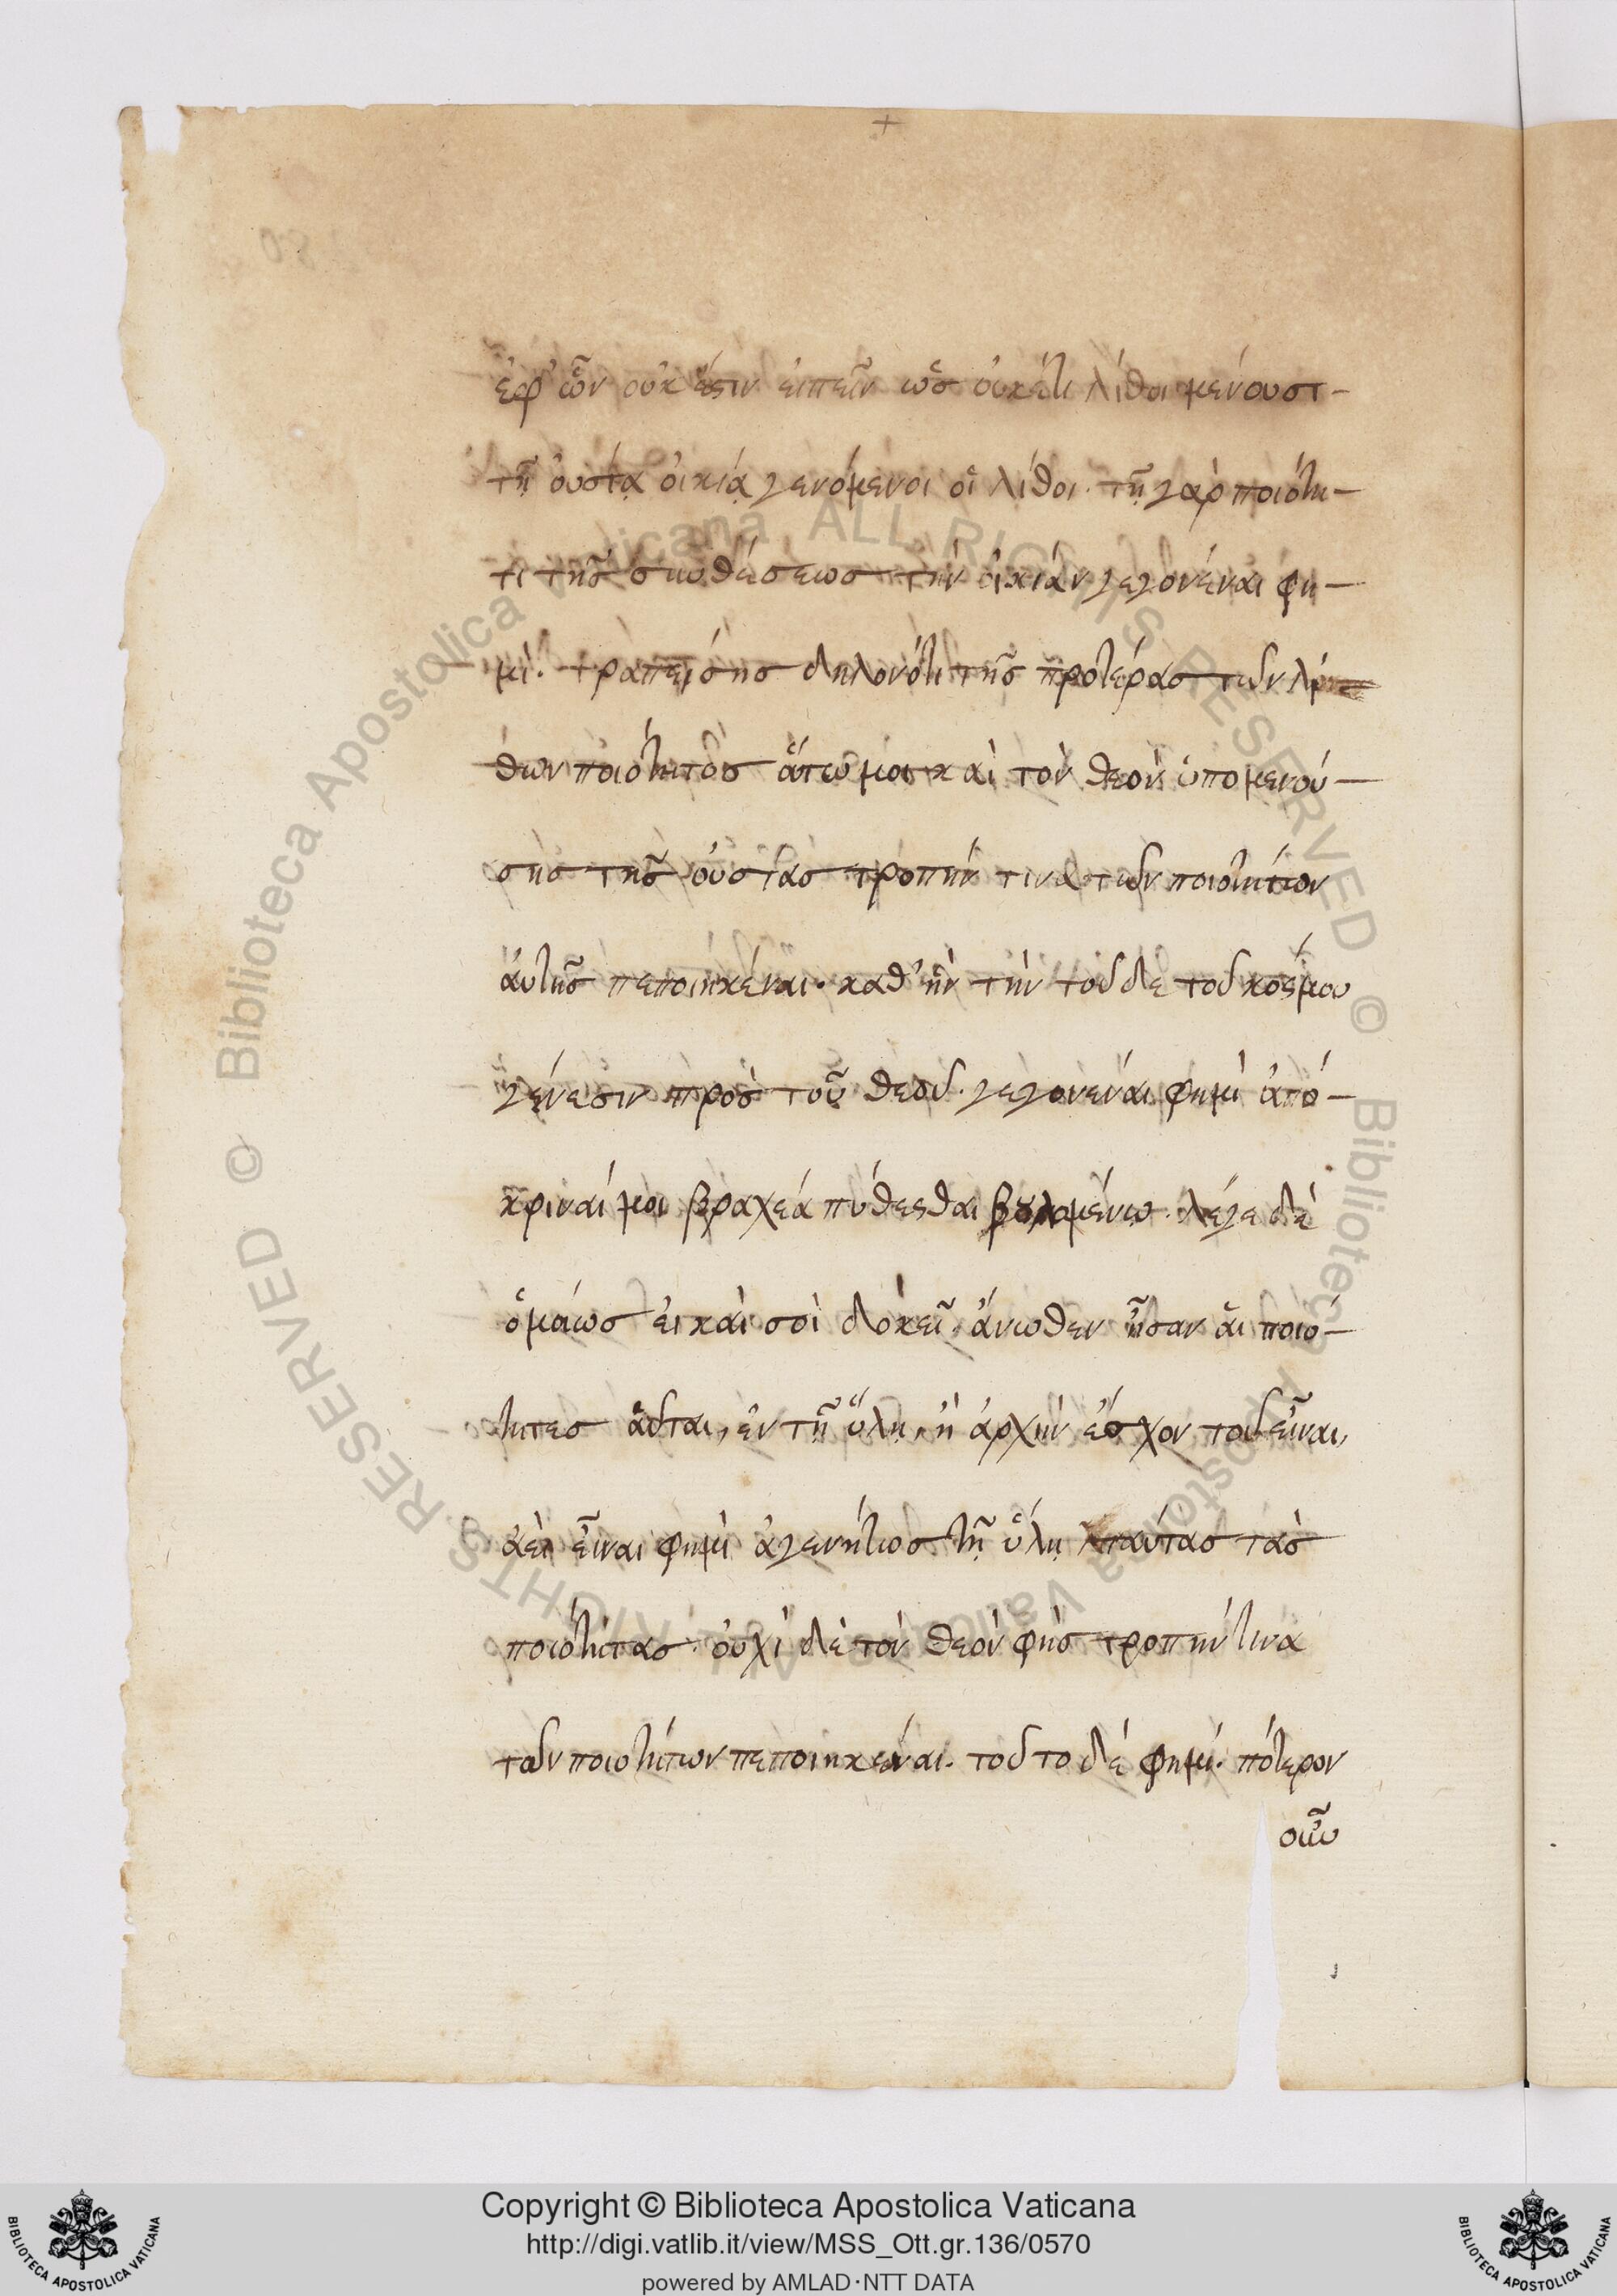 ἐφ' ὧν οὐκ ἔστιν εἰπεῖν ὡς οὐκέτι λίθοι μένουσι-
τῇ οὐσίᾳ οἰκίᾳ γενόμενοι οἱ λίθοι. τῇ γὰρ ποιότη-
τι τῆς συνθέσεως τὴν οἰκίαν γεγονέναι φη-
μί. τραπείσης δηλονότι τῆς προτέρας τῶν λί
θων ποιότητος οὕτω μοι καὶ τὸν θεὸν ὑπομενού-
σης τῆς οὐσίας τροπήν τινα τῶν ποιοτήτων
αὐτῆς πεποιηκέναι. καθ' ἣν τὴν τοῦδε τοῦ κόσμου
γένεσιν πρὸς τοῦ θεοῦ. γεγονέναι φημὶ ἀπό-
κριναί μοι βραχέα πύθεσθαι βουλομένῳ. λέγε δὲ
ὁμοίως εἰ καὶ σοὶ δοκεῖ. ἄνωθεν ἦσαν αἱ ποιό-
τητες αὗται, ἐν τῇ ὕλῃ, ἢ ἀρχὴν ἔσχον τοῦ εἶναι,
ἀεὶ εἶναι φημὶ ἀγενήτως τῇ ὕλῃ ταύτας τὰς
ποιότητας. οὐχὶ δὲ τὸν θεὸν φῂς τροπήν τινα
τῶν ποιοτήτων πεποιηκέναι. τοῦτο δέ φημί. πότερον
οὖν
Copyright © Biblioteca Apostolica Vaticana
http://digi.vatlib.it/view/MSS_Ott.gr.136/0570
powered by AMLAD·NTT DATA
BIBLIOTECA APOSTOLICA VATICANA
BIBLIOTECA APOSTOLICA VATICANA
© Biblioteca Apostolica Vaticana ALL RIGHTS RESERVED
© Biblioteca Apostolica Vaticana ALL RIGHTS RESERVED